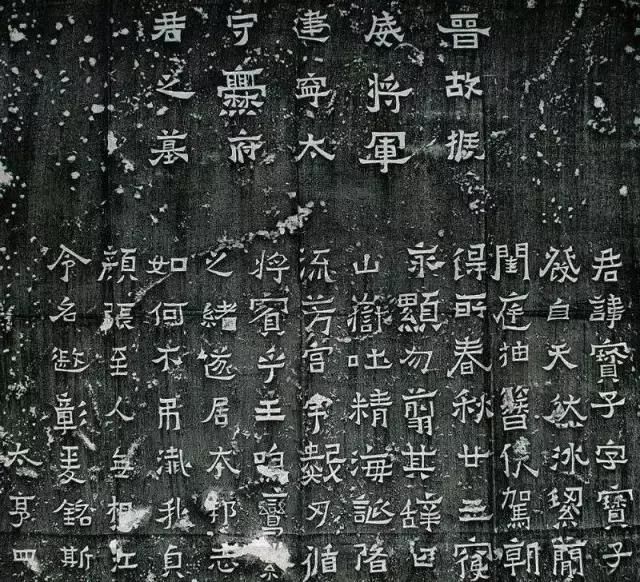 晉故振
威將軍
建寧太
守爨府
君之墓
君諱寶子字寶子
發自天然冰絜簡
閨庭抽簪俟駕朝
得所春秋廿五寢
永顯勿翦其辭曰
山嶽吐精海誕陼
流芳宮宇數仞循
將賓乎王鳴鸞紫
之緒遂居本邦志
如何不弔殲我貞
顏張至人無想江
令名遐彰爰銘斯
太亨四